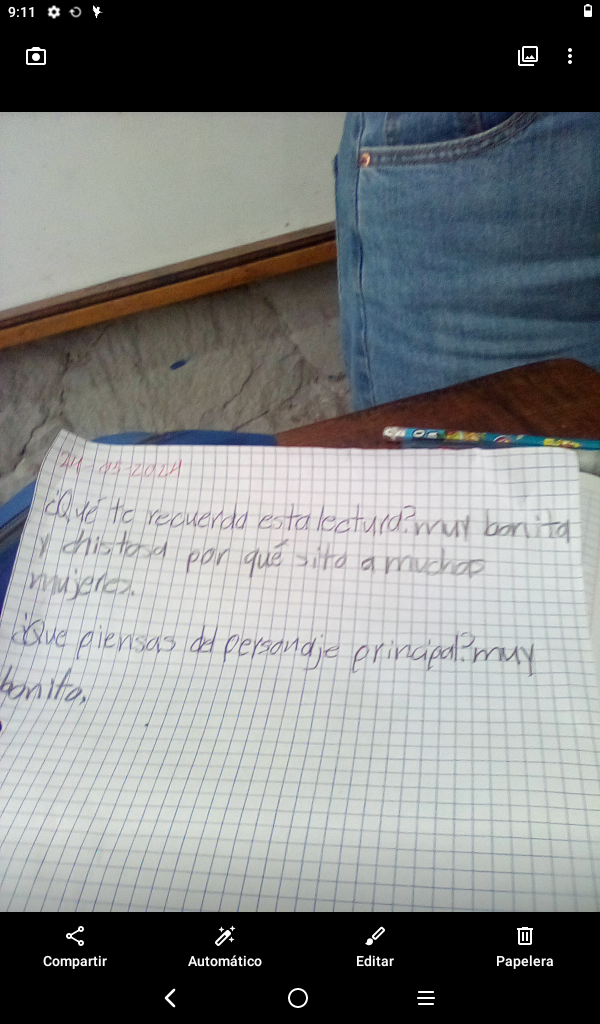 9:11
24-05-2024
¿Qué te recuerda esta lectura? muy bonita
y chistosa por qué sito a muchas
mujeres.
¿Que piensas del personaje principal? muy
bonito.
Compartir
Automático
Editar
Papelera